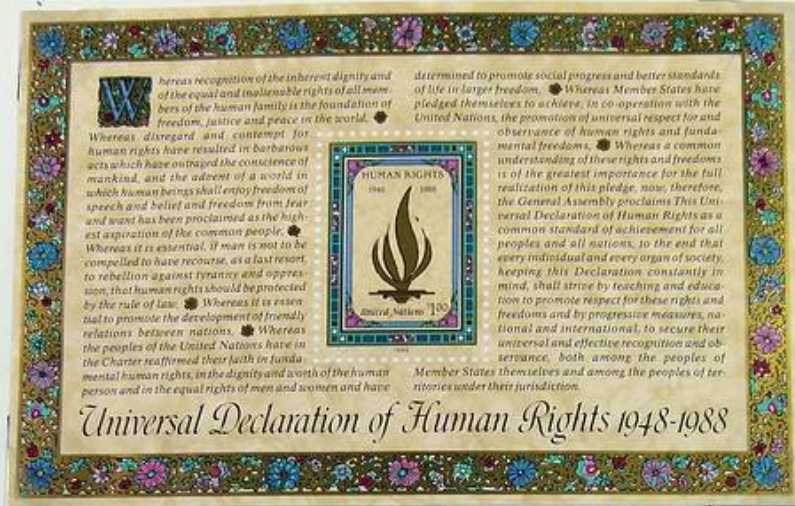 Whereas recognition of the inherent dignity and
of the equal and inalienable rights of all mem-
bers of the human family is the foundation of
freedom, justice and peace in the world.
Whereas disregard and contempt for
human rights have resulted in barbarous
acts which have outraged the conscience of
mankind, and the advent of a world in
which human beings shall enjoy freedom of
speech and belief and freedom from fear
and want has been proclaimed as the high-
est aspiration of the common people,
Whereas it is essential, if man is not to be
compelled to have recourse, as a last resort,
to rebellion against tyranny and oppres-
sion, that human rights should be protected
by the rule of law, Whereas it is essen-
tial to promote the development of friendly
relations between nations, Whereas
the peoples of the United Nations have in
the Charter reaffirmed their faith in funda-
mental human rights, in the dignity and worth of the human
person and in the equal rights of men and women and have
determined to promote social progress and better standards
of life in larger freedom, Whereas Member States have
pledged themselves to achieve, in co-operation with the
United Nations, the promotion of universal respect for and
observance of human rights and funda-
mental freedoms, Whereas a common
understanding of these rights and freedoms
is of the greatest importance for the full
realization of this pledge, now, therefore,
the General Assembly proclaims This Uni-
versal Declaration of Human Rights as a
common standard of achievement for all
peoples and all nations, to the end that
every individual and every organ of society,
keeping this Declaration constantly in
mind, shall strive by teaching and educa-
tion to promote respect for these rights and
freedoms and by progressive measures, na-
tional and international, to secure their
universal and effective recognition and ob-
servance, both among the peoples of
Member States themselves and among the peoples of ter-
ritories under their jurisdiction.
HUMAN RIGHTS
1948 1988
United Nations $1.00
1988
Universal Declaration of Human Rights 1948-1988